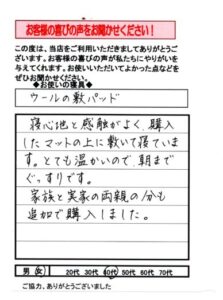 お客様の喜びの声をお聞かせください！
この度は、当店をご利用いただきましてありがとうご
ざいます。お客様の喜びの声が私たちにやりがいを
与えてくれます。お使いいただいてよかった点などを
ぜひお聞かせください。
◆お使いの寝具◆
ウールの敷パッド
寝心地と感触がよく、購入
したマットの上に敷いて寝ていま
す。とても温かいので、朝まで
ぐっすりです。
家族と実家の両親の分も
追加で購入しました。
男 女 20代 30代 40代 50代 60代 70代
ご協力、ありがとうございました